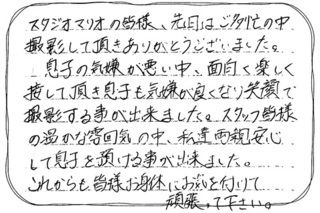 スタジオマリオの皆様、先日はご多忙の中
撮影して頂きありがとうございました。
息子の気嫌が悪い中、面白く楽しく
接して頂き息子も気嫌が良くなり笑顔で
撮影する事が出来ました。スタッフ皆様
の温かな雰囲気の中、私達両親安心
して息子を預ける事が出来ました。
これからも皆様お身体にお気を付けて
頑張って下さい。